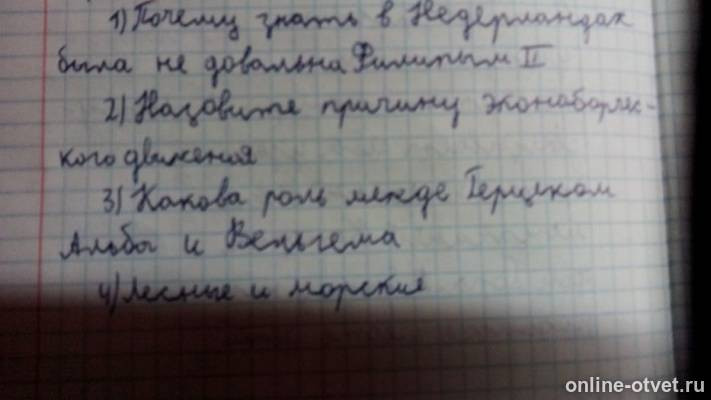 1) Почему знать в Недерландах
была не довальна Филипым II
2) Назовите причину эконоборлес-
кого движения
3) Какова роль межде Герцеком
Альбы и Вельгема
4) лесные и морские
online-otvet.ru